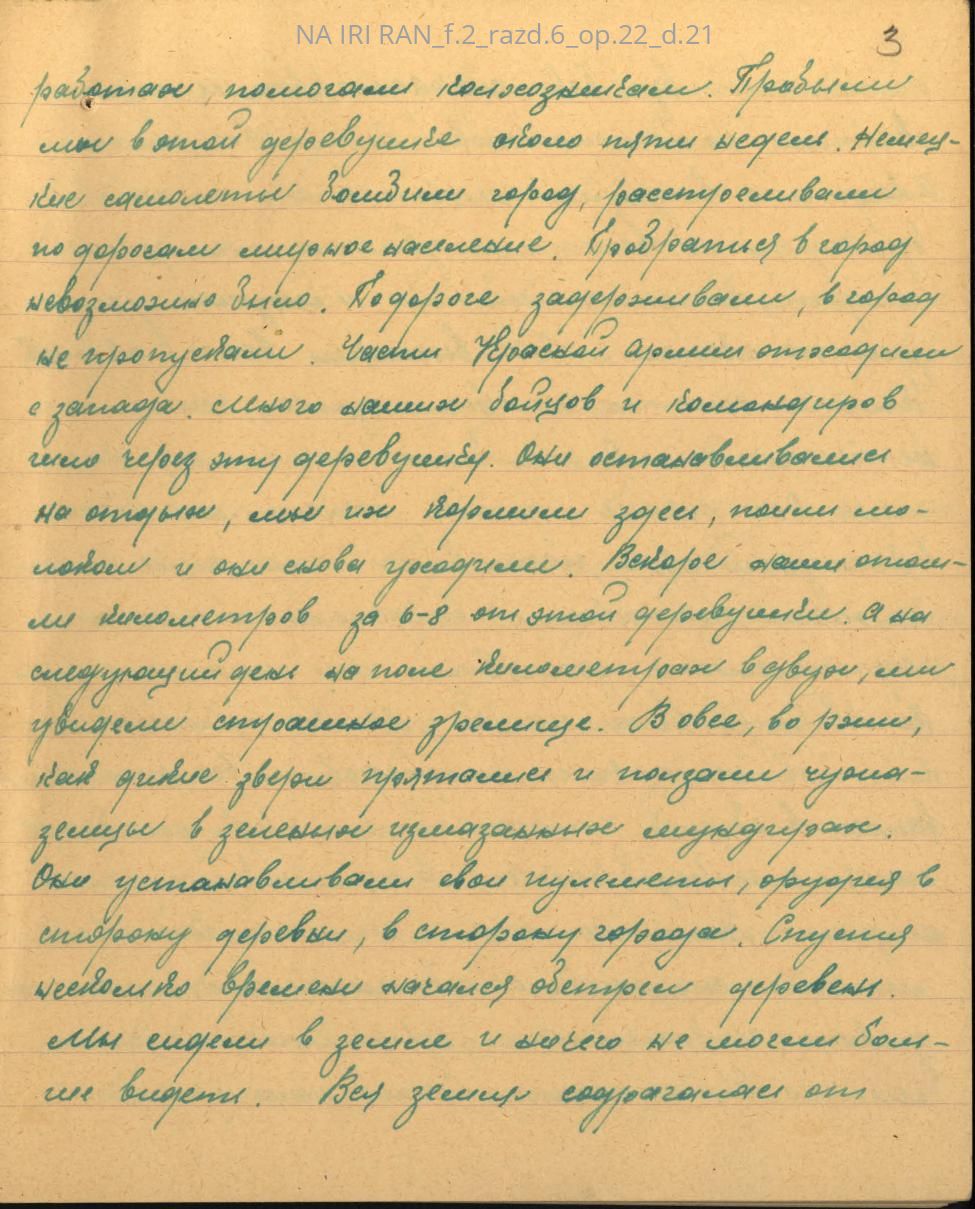 NA IRI RAN_f.2_razd.6_op.22_d.21
3
работах, помогали колхозникам. Пробыли
мы в этой деревушке около пяти недель. Немец-
кие самолеты бомбили город, расстреливали
по дорогам мирное население. Пробраться в город
невозможно было. По дороге задерживали, в город
не пропускали. Части Красной армии отходили
с запада. Много наших бойцов и командиров
шло через эту деревушку. Они останавливались
на отдых, мы их кормили здесь, поили мо-
локом и они снова уходили. Вскоре наши отош-
ли километров за 6-8 от этой деревушки. А на
следующий день на поле километрах в двух, мы
увидели страшное зрелище. В овсе, во ржи,
как дикие звери прятались и ползали чужа-
земцы в зеленых измазанных мундирах.
Они устанавливали свои пулеметы, орудия в
сторону деревни, в сторону города. Спустя
несколько времени начался обстрел деревень.
Мы сидели в земле и ничего не могли боль-
ше видеть. Вся земля содрагалась от